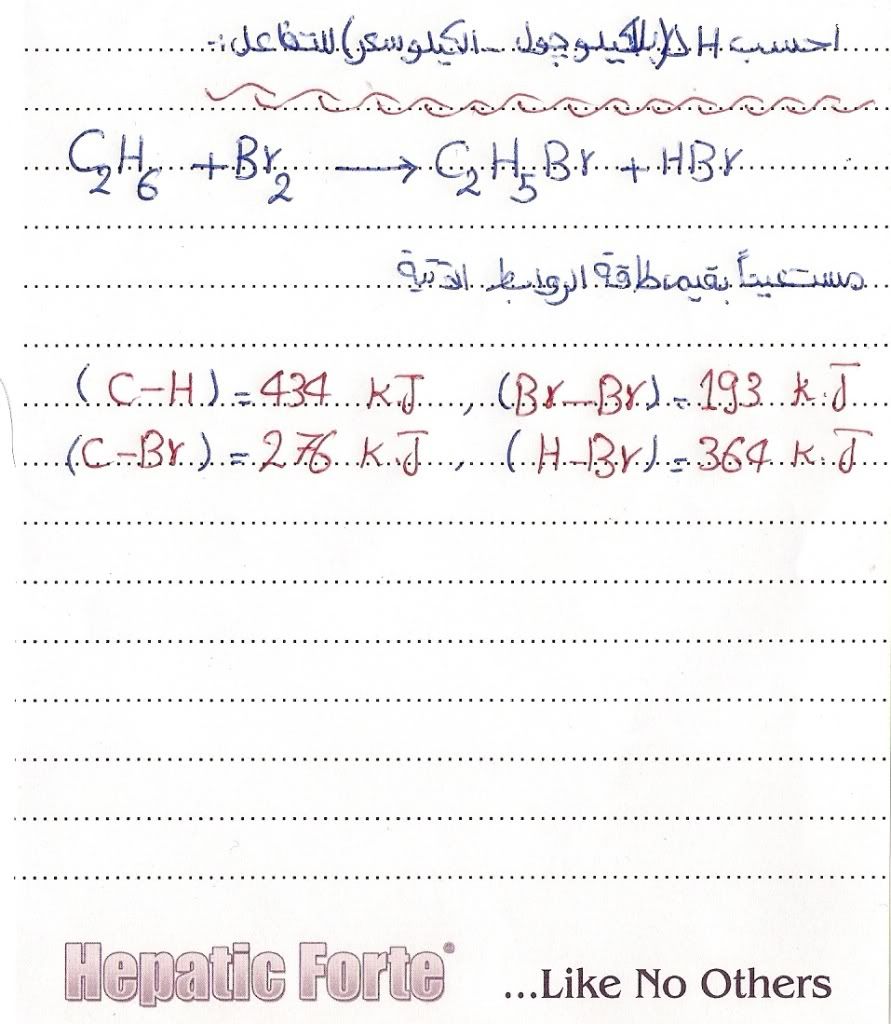 احسب ΔH (بالكيلو جول - الكيلو سعر) للتفاعل :-
C₂H₆ + Br₂ → C₂H₅Br + HBr
مستعيناً بقيم طاقة الروابط الآتية
(C-H) = 434 kJ , (Br-Br) = 193 k.J
(C-Br) = 276 k.J , (H-Br) = 364 k.J
Hepatic Forte ...Like No Others